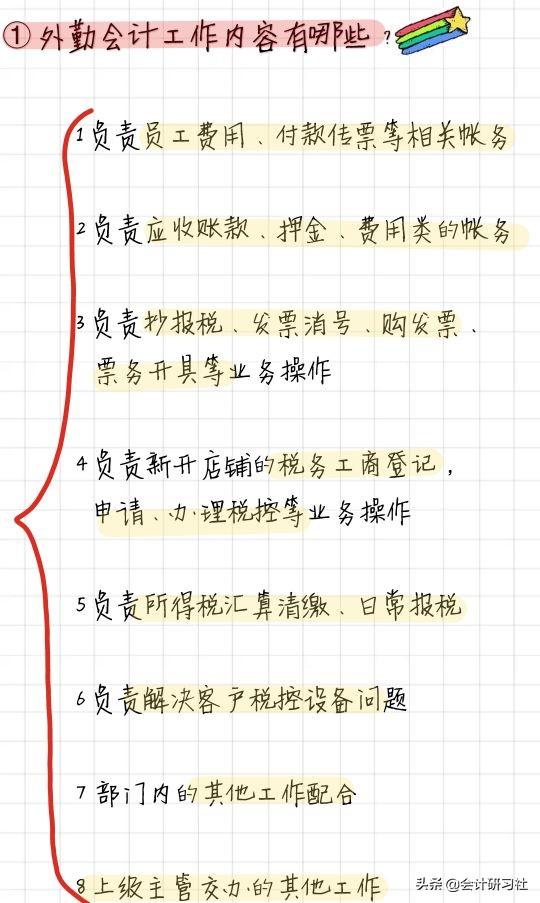 ①外勤会计工作内容有哪些?
1负责员工费用、付款传票等相关帐务
2负责应收账款、押金、费用类的帐务
3负责抄报税、发票消号、购发票、
票务开具等业务操作
4负责新开店铺的税务工商登记,
申请、办理税控等业务操作
5负责所得税汇算清缴、日常报税
6负责解决客户税控设备问题
7部门内的其他工作配合
8上级主管交办的其他工作
头条@会计研习社